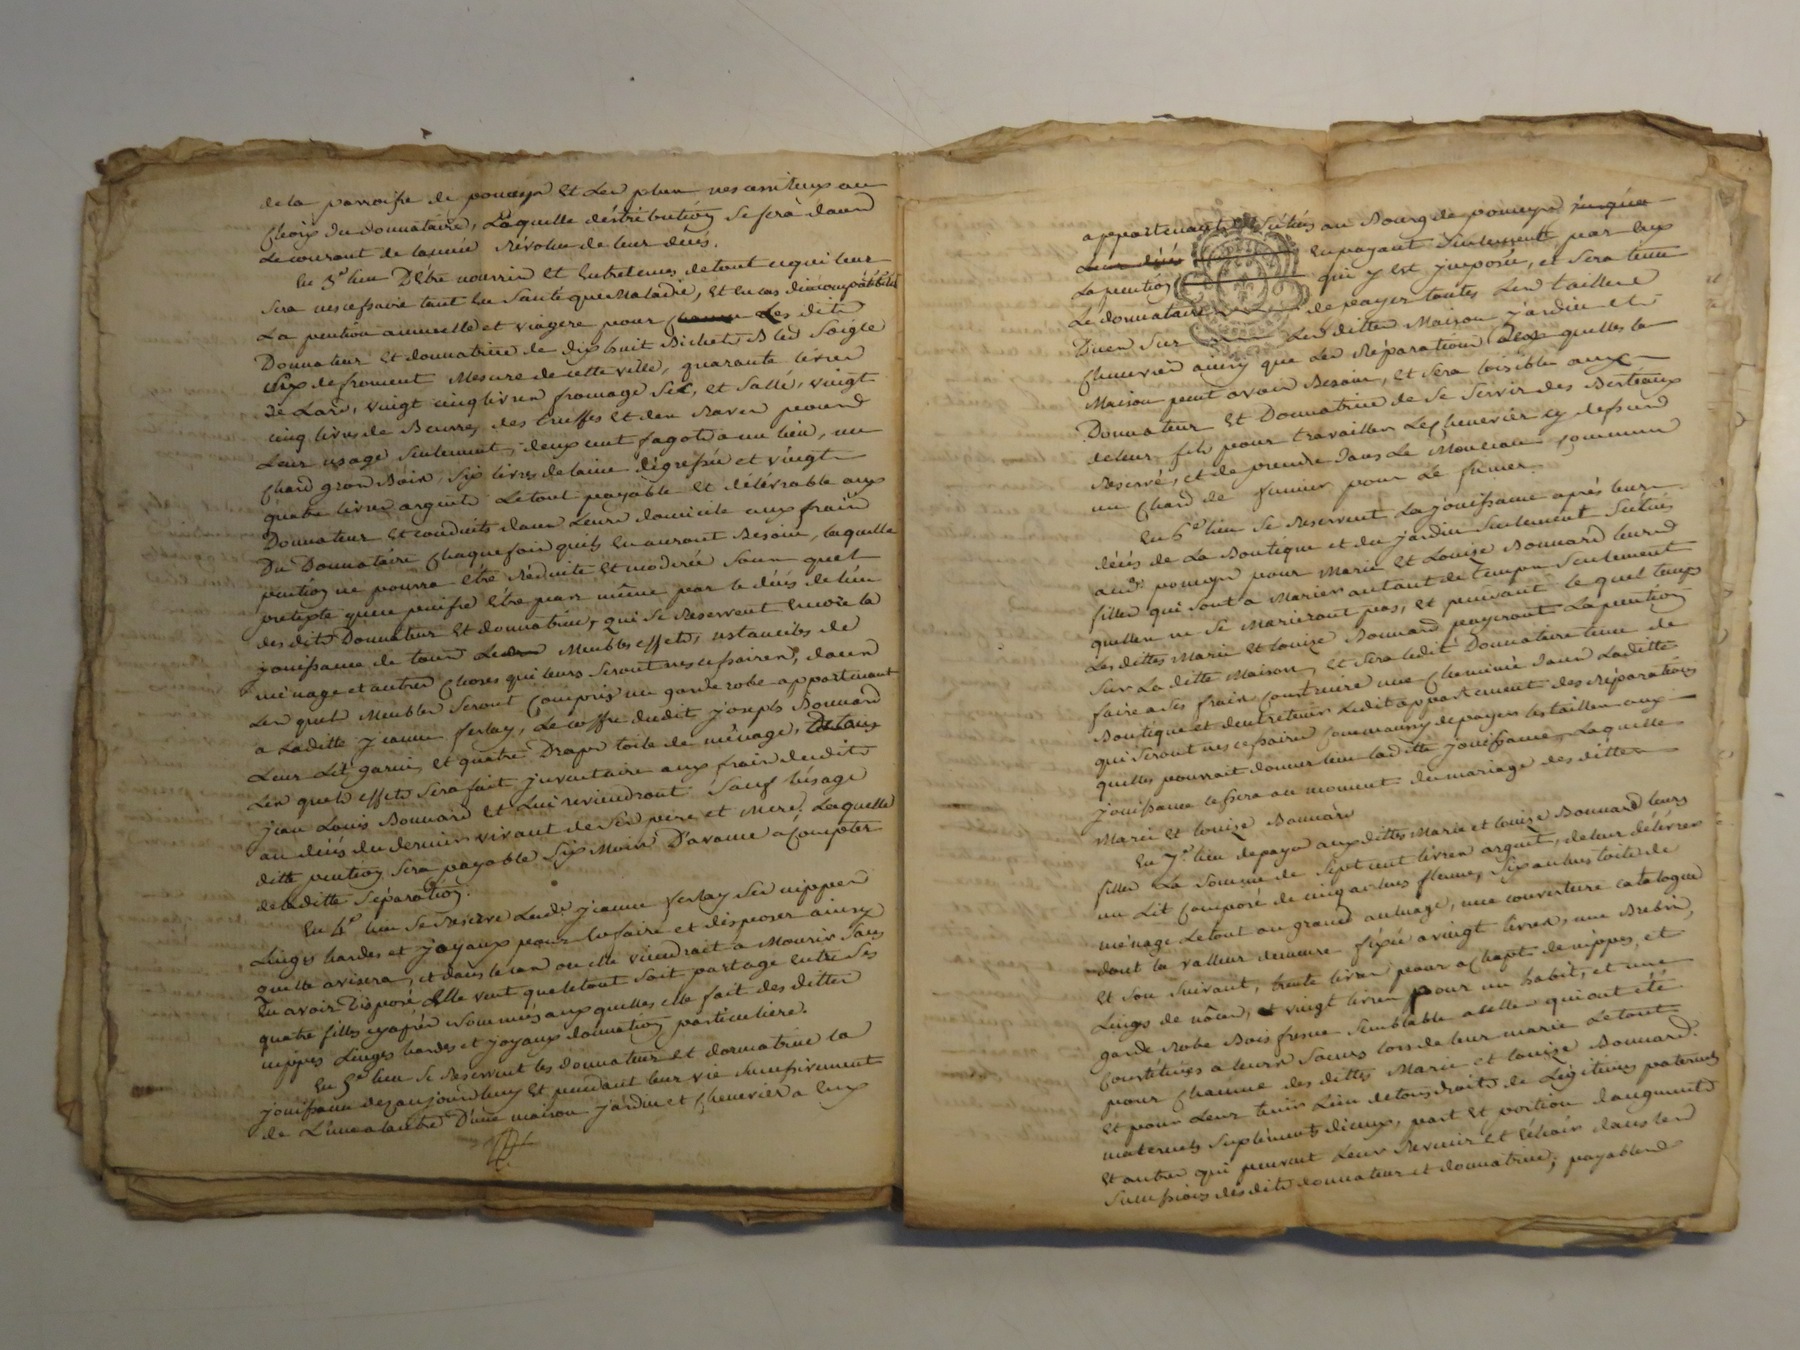 de la parroisse de pomeys et les plus nescessiteux au
choix du donnataire, Laquelle déstribution se fera dans
Le courant de lannée Révolue de leur décés.
En 3e lieu D'être nourris et Entretenus de tout ce qui leur
sera nescessaire tant En Santé que Maladie, et en cas dincompatibilité
La pention annuelle et viagere pour Les dits
Donnateur Et donnatrice de dix huit Bichets Bled Soigle
Six de froment Mesure de cette ville, quarante livres
de Lard, vingt cinq livres fromage Sec, et Sallé, vingt
cinq livres de Beurre, des truffes Et des Raves pour
Leur usage Seulement, deux cent fagots a un lien, un
Chard gros Bois, Six livres de laine dégressée et vingt
quatre livres argent Le tout payable Et délivrable aux
Donnateur Et conduits dans Leurs domicile aux frais
Du Donnataire Chaque fois quils En auront Besoin, laquelle
pention ne pourra être Réduite Et modérée Sous quel
pretexte que ce puisse être pas même par le décés de l'un
des dits Donnateur Et donnatrice, qui Se Reservent Encore la
jouissance de tous Meubles effets, ustancilles de
ménage et autres Choses qui leurs Seront nescessaires, dans
Les quels Meubles Seront Compris un garde robe appartenant
a Laditte jeanne ferlay, Le coffre dudit joseph Bonnard
Leur Lit garni, et quatre Draps toile de ménage,
Les quels effets Sera fait jnventaire aux frais dudit
jean Louis Bonnard Et Lui reviendront Sauf lusage
au décés du dernier vivant de Ses pere et Mere. Laquelle
ditte pention Sera payable Six Mois D'avance a Compter
de laditte Séparation.
En 4e lieu Se Reserve Lad.e jeanne ferlay Ses nippes
Linges hardes et joyaux pour En faire et disposer ainsy
quelle avisera, et dans le cas ou elle viendrait a Mourir Sans
En avoir Disposé Elle veut que le tout Soit partagé entre Ses
quatre filles cy après nommées auxquelles elle fait des dittes
nippes Linges hardes et joyaux donnation particuliere.
En 5e lieu Se Reservent les donnateur Et donnatrice la
jouissance des aujourdhuy Et pendant leur vie Sucessivement
de L'une a lautre D'une maison jardin et Chenevier a Eux
appartenants Scitués au Bourg de pomeys
En payant Seulement par Eux
La pention qui y Est jmposée, et Sera tenu
Le donnataire de payer toutes Les tailles
Dues Sur Les dittes Maison jardin et
Chenevier ainsy que Les Réparations des quelles la
Maison peut avoir Besoin, Et Sera loisible aux
Donnateur Et Donnatrice de Se Servir des Bestiaux
de leur fils pour travailler Le Chenevier cy dessus
Reservé, et de prendre dans Le Monceau Commun
un Chard de fumier pour Le fumer.
En 6e lieu Se Reservent La jouissance après leur
décés de La Boutique et du jardin Seulement Scitués
aud.t pomeys pour Marie et Louise Bonnard leurs
filles qui Sont a Marier autant de temps Seulement
quelles ne Se Marieront pas, Et pendant le quel temps
Les dittes Marie Et Louize Bonnard payeront La pention
Sur La ditte Maison, et Sera ledit Donnataire tenu de
faire a Ses frais Construire une Cheminée dans Laditte
Boutique et d'entretenir Ledit appartement des Réparations
qui Seront nescessaires Comme aussy de payer les tailles aux
quelles pourrait donner lieu laditte jouissance, Laquelle
jouissance cessera au moment du mariage des dittes
Marie Et Louize Bonnard.
En 7e lieu de payer aux dittes Marie et Louize Bonnard leurs
filles La Somme de Sept cent livres argent, de leur délivrer
un Lit Composé de cinq aulnes flenne, Six aulnes toile de
ménage Le tout au grand aulnage, une couverture catalogne
dont la valleur demeure fixée a vingt livres, une Brebis
Et Son Suivant, trente livres pour achapt de nippes, et
Linges de nôces, et vingt livres pour un habit, et une
garde Robe Bois fresne Semblable a celle qui ont été
Constitués a leurs Sœurs lors de leur mariage Le tout
pour Chacune des dittes Marie et Louize Bonnard.
Et pour Leur tenir Lieu de tous droits de Légitimes paternels
maternels Supléments diceux, part Et portion daugments
Et autres qui peuvent Leur Revenir Et Echoir dans les
Sucessions desdits donnateur et donnatrice, payables